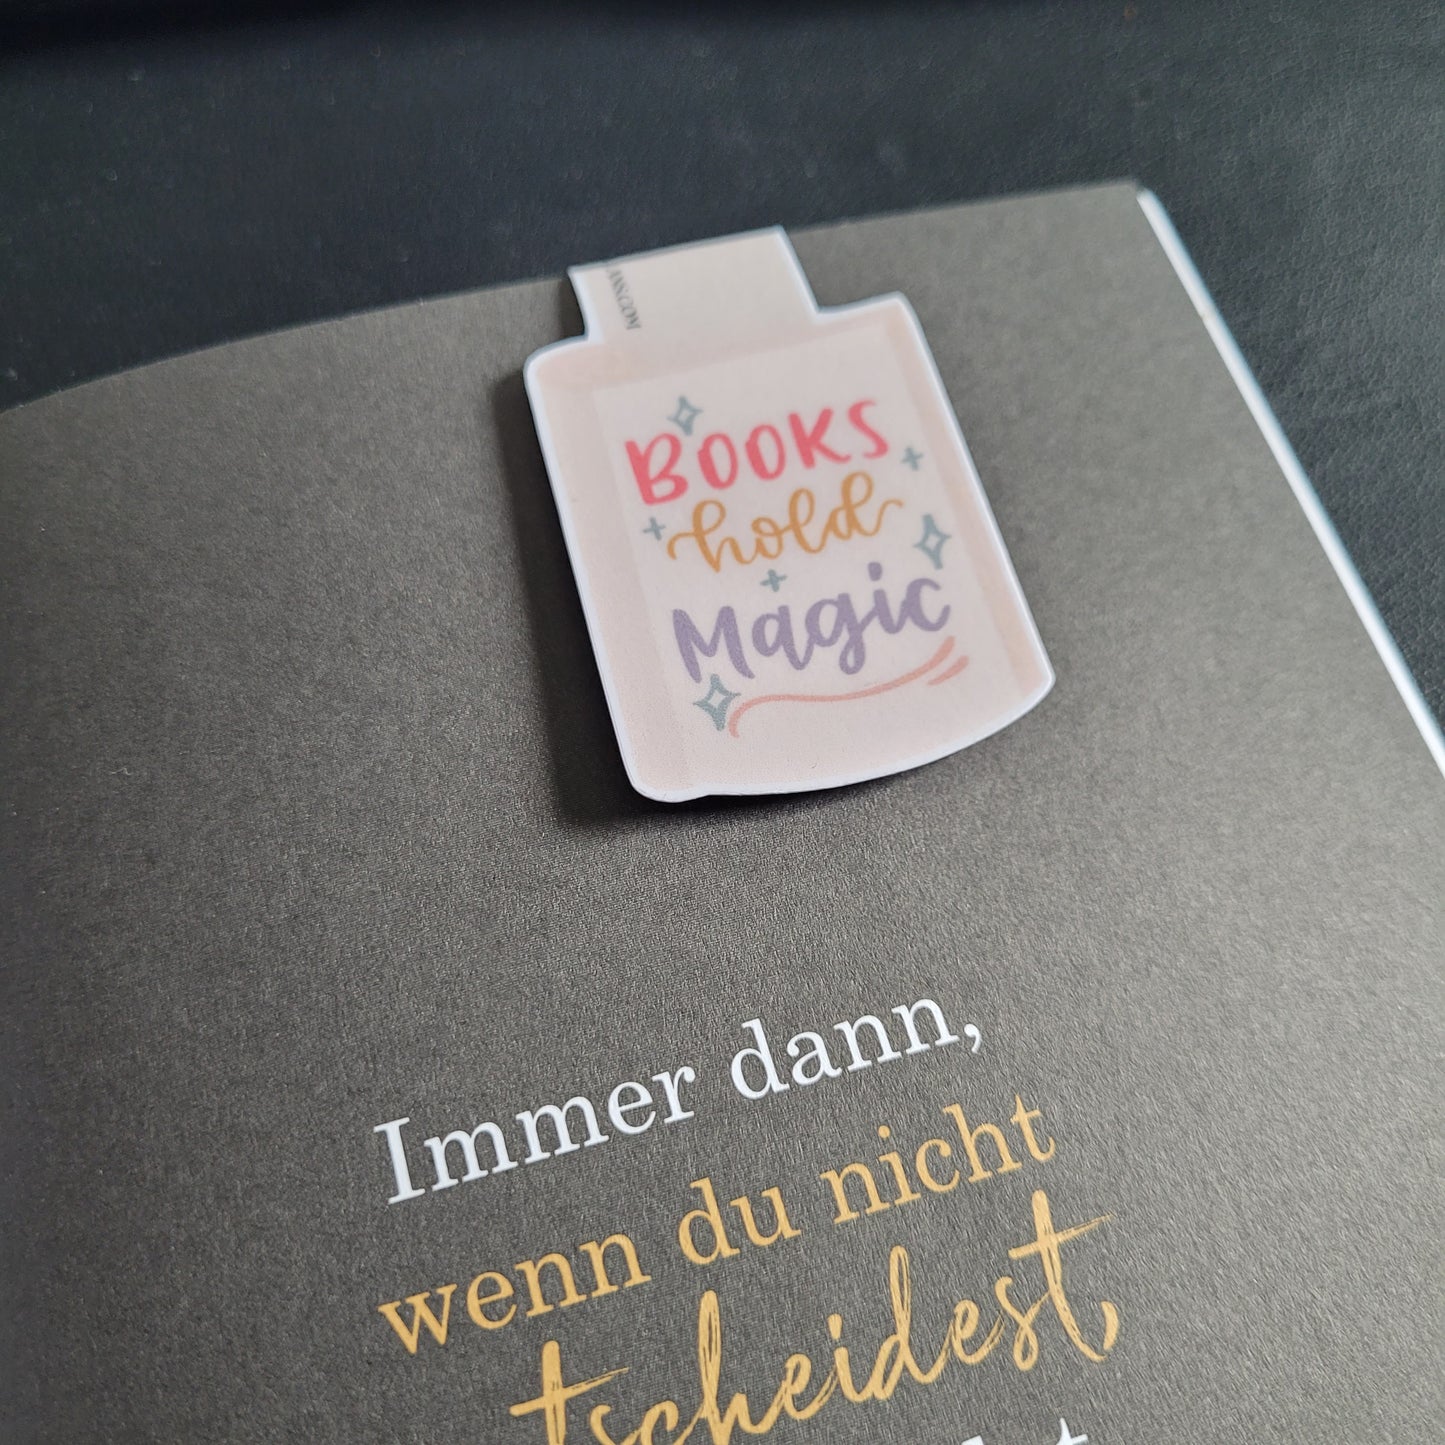 Books
hold
Magic
Immer dann,
wenn du nicht
tscheidest,